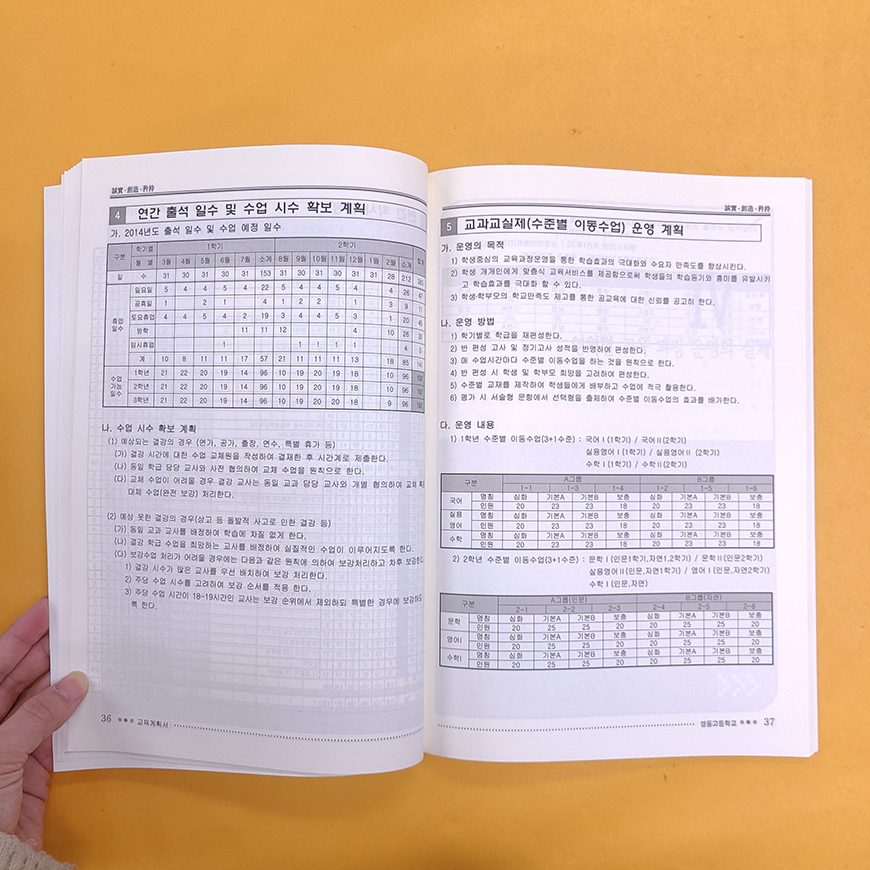 誠實·創造·矜持
4 연간 출석 일수 및 수업 시수 확보 계획
가. 2014년도 출석 일수 및 수업 예정 일수
구분 학기별 1학기 2학기
월 별 3월 4월 5월 6월 7월 소계 8월 9월 10월 11월 12월 1월 2월 소계
일 수 31 30 31 30 31 153 31 30 31 30 31 31 28 212 365
휴업일수 일요일 5 4 4 5 4 22 5 4 4 5 4 4 26
공휴일 1 2 1 4 1 2 1 3 9
토요휴업 4 4 5 4 2 19 3 4 4 5 3 1 20
방학 11 11 12 4 10 26
임시휴업 4 4
계 10 8 11 11 17 57 21 11 11 11 13 18 85
수업가능일수 1학년 21 22 20 19 14 96 10 19 20 19 18 10 96
2학년 21 22 20 19 14 96 10 19 20 19 18 10 96
3학년 21 22 20 19 14 96 10 19 20 19 18 9 96
나. 수업 시수 확보 계획
(1) 예상되는 결강의 경우 (연가, 공가, 출장, 연수, 특별 휴가 등)
(가) 결강 시간에 대한 수업 교체원을 작성하여 결재한 후 시간계로 제출한다.
(나) 동일 학급 담당 교사와 사전 협의하여 교체 수업을 원칙으로 한다.
(다) 교체 수업이 어려울 경우 결강 교사는 동일 교과 담당 교사와 개별 협의하여 교체
대체 수업(완전 보강) 처리한다.
(2) 예상 못한 결강의 경우(상고 등 돌발적 사고로 인한 결강 등)
(가) 동일 교과 교사를 배정하여 학습에 차질 없게 한다.
(나) 결강 학급 수업을 희망하는 교사를 배정하여 실질적인 수업이 이루어지도록 한다.
(다) 보강수업 처리가 어려울 경우에는 다음과 같은 원칙에 의하여 보강처리하고 차후 보강한다
1) 결강 시수가 많은 교사를 우선 배치하여 보강 처리한다.
2) 주당 수업 시수를 고려하여 보강 순서를 적용 한다.
3) 주당 수업 시간이 18~19시간인 교사는 보강 순위에서 제외하되 특별한 경우에 보강하도
록 한다.
36 교육계획서
誠實·創造·矜持
5 교과교실제(수준별 이동수업) 운영 계획
가. 운영의 목적
1) 학생중심의 교육과정운영을 통한 학습효과의 극대화와 수요자 만족도를 향상시킨다.
2) 학생 개개인에게 맞춤식 교육서비스를 제공함으로써 학생들의 학습동기와 흥미를 유발시키
고 학습효과를 극대화 할 수 있다.
3) 학생·학부모의 학교만족도 제고를 통한 공교육에 대한 신뢰를 공고히 한다.
나. 운영 방법
1) 학기별로 학급을 재편성한다.
2) 반 편성 고사 및 정기고사 성적을 반영하여 편성한다.
3) 매 수업시간마다 수준별 이동수업을 하는 것을 원칙으로 한다.
4) 반 편성 시 학생 및 학부모 희망을 고려하여 편성한다.
5) 수준별 교재를 제작하여 학생들에게 배부하고 수업에 적극 활용한다.
6) 평가 시 서술형 문항에서 선택형을 출제하여 수준별 이동수업의 효과를 배가한다.
다. 운영 내용
1) 1학년 수준별 이동수업(3+1수준) : 국어Ⅰ(1학기) / 국어Ⅱ(2학기)
실용영어Ⅰ(1학기) / 실용영어Ⅱ (2학기)
수학Ⅰ(1학기) / 수학Ⅱ(2학기)
구분 A그룹 B그룹
1-1 1-3 1-4 1-2 1-5 1-6
국어 명칭 심화 기본A 기본B 보충 심화 기본A 기본B 보충
실용 인원 20 23 23 18 20 23 23 18
영어 명칭 심화 기본A 기본B 보충 심화 기본A 기본B 보충
인원 20 23 23 18 20 23 23 18
수학 명칭 심화 기본A 기본B 보충 심화 기본A 기본B 보충
인원 20 23 23 18 20 23 23 18
2) 2학년 수준별 이동수업(3+1수준) : 문학Ⅰ(인문1학기,자연1,2학기) / 문학Ⅱ(인문2학기)
실용영어Ⅱ(인문,자연1학기) / 영어Ⅰ(인문,자연2학기)
수학Ⅰ(인문,자연)
구분 A그룹(인문) B그룹(자연)
2-1 2-2 2-3 2-4 2-5 2-6
문학 명칭 심화 기본A 기본B 보충 심화 기본A 기본B 보충
인원 20 25 25 20 20 25 25 20
영어Ⅰ 명칭 심화 기본A 기본B 보충 심화 기본A 기본B 보충
인원 20 25 25 20 20 25 25 20
수학Ⅰ 명칭 심화 기본A 기본B 보충 심화 기본A 기본B 보충
인원 20 25 25 20 20 25 25 20
영동고등학교 37